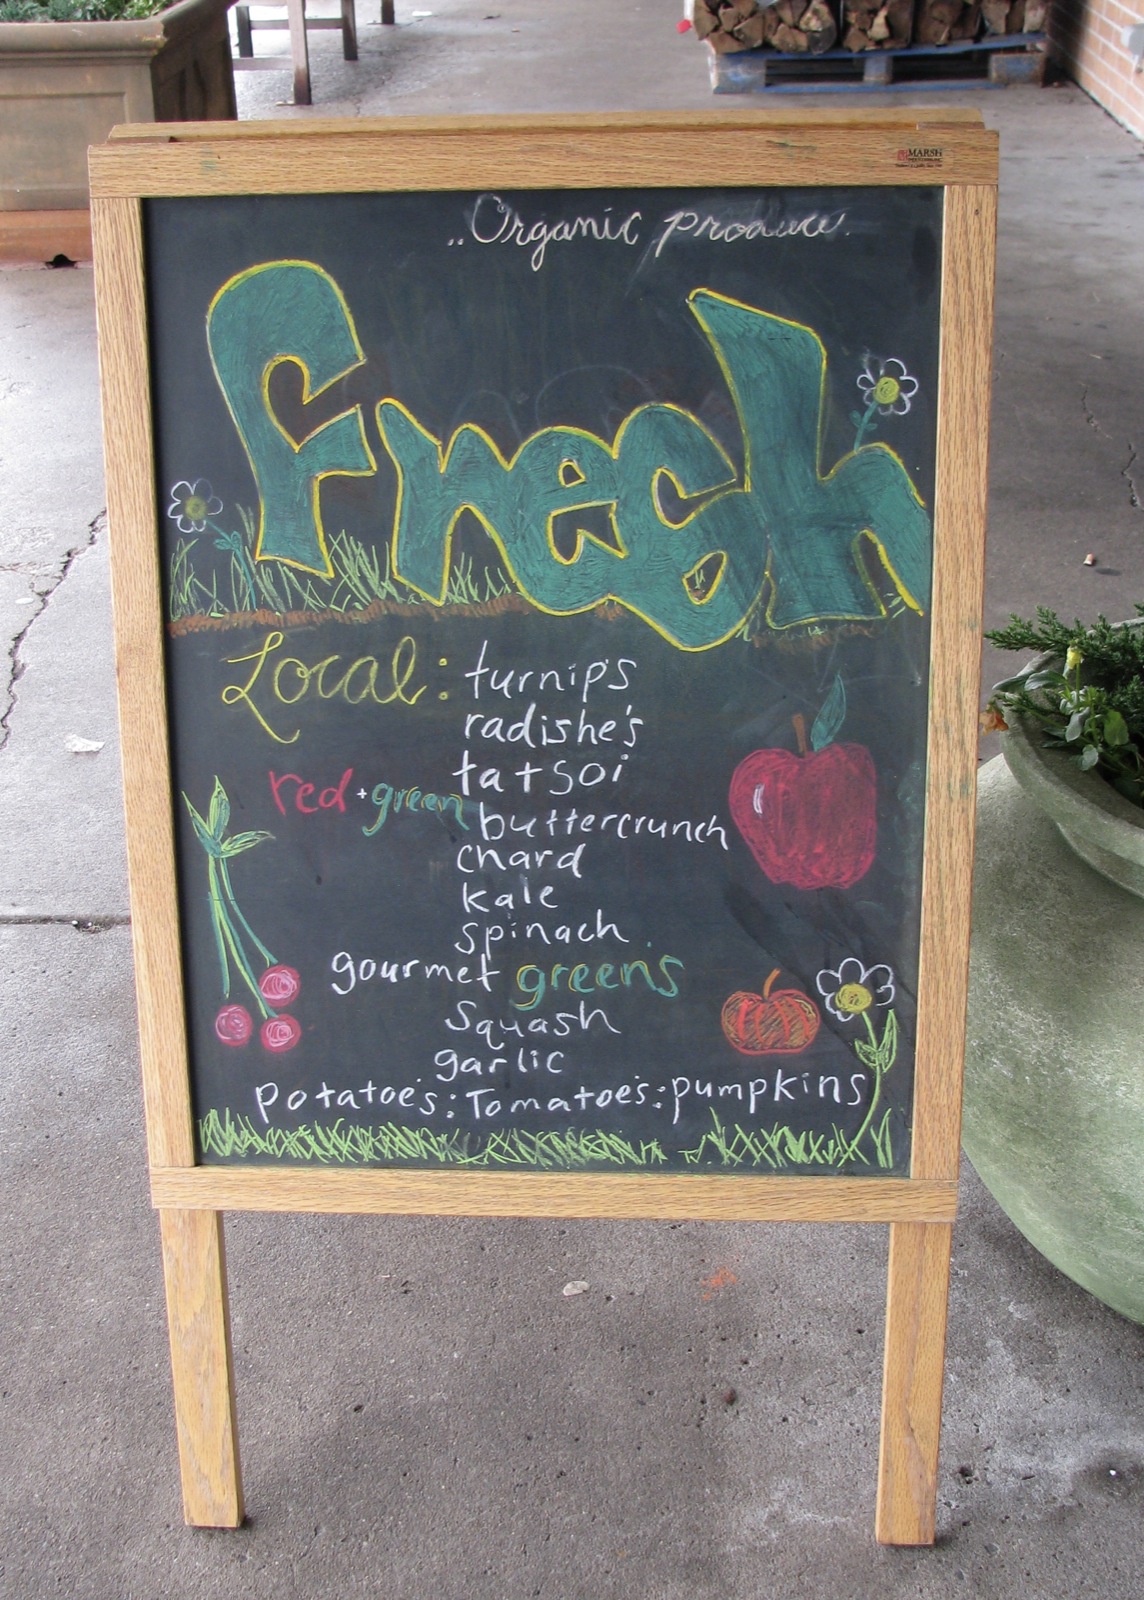 MARSH
..Organic produce.
fresh
Local: turnip's
radishe's
tatsoi
red + green buttercrunch
chard
kale
spinach
gourmet green's
Squash
garlic
Potatoe's: Tomatoe's: pumpkins